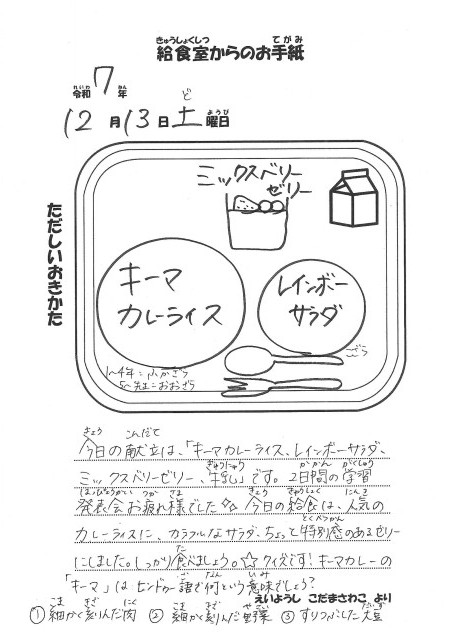 給食室からのお手紙
令和 7 年
12月13日土曜日
ただしいおきかた
ミックスベリー
ゼリー
キーマ
カレーライス
レインボー
サラダ
1～4年＝ふかざら
5～先＝おおざら
今日の献立は、「キーマカレーライス、レインボーサラダ、
ミックスベリーゼリー、牛乳」です。2日間の学習
発表会お疲れ様でした☆ 今日の給食は、人気の
カレーライスに、カラフルなサラダ、ちょっと特別感のあるゼリー
にしました。しっかり食べましょう。☆クイズです！キーマカレーの
「キーマ」はヒンドゥー語で何という意味でしょう？
えいようし こだまさわこ より
①細かく刻んだ肉 ②細かく刻んだ野菜 ③すりつぶした大豆